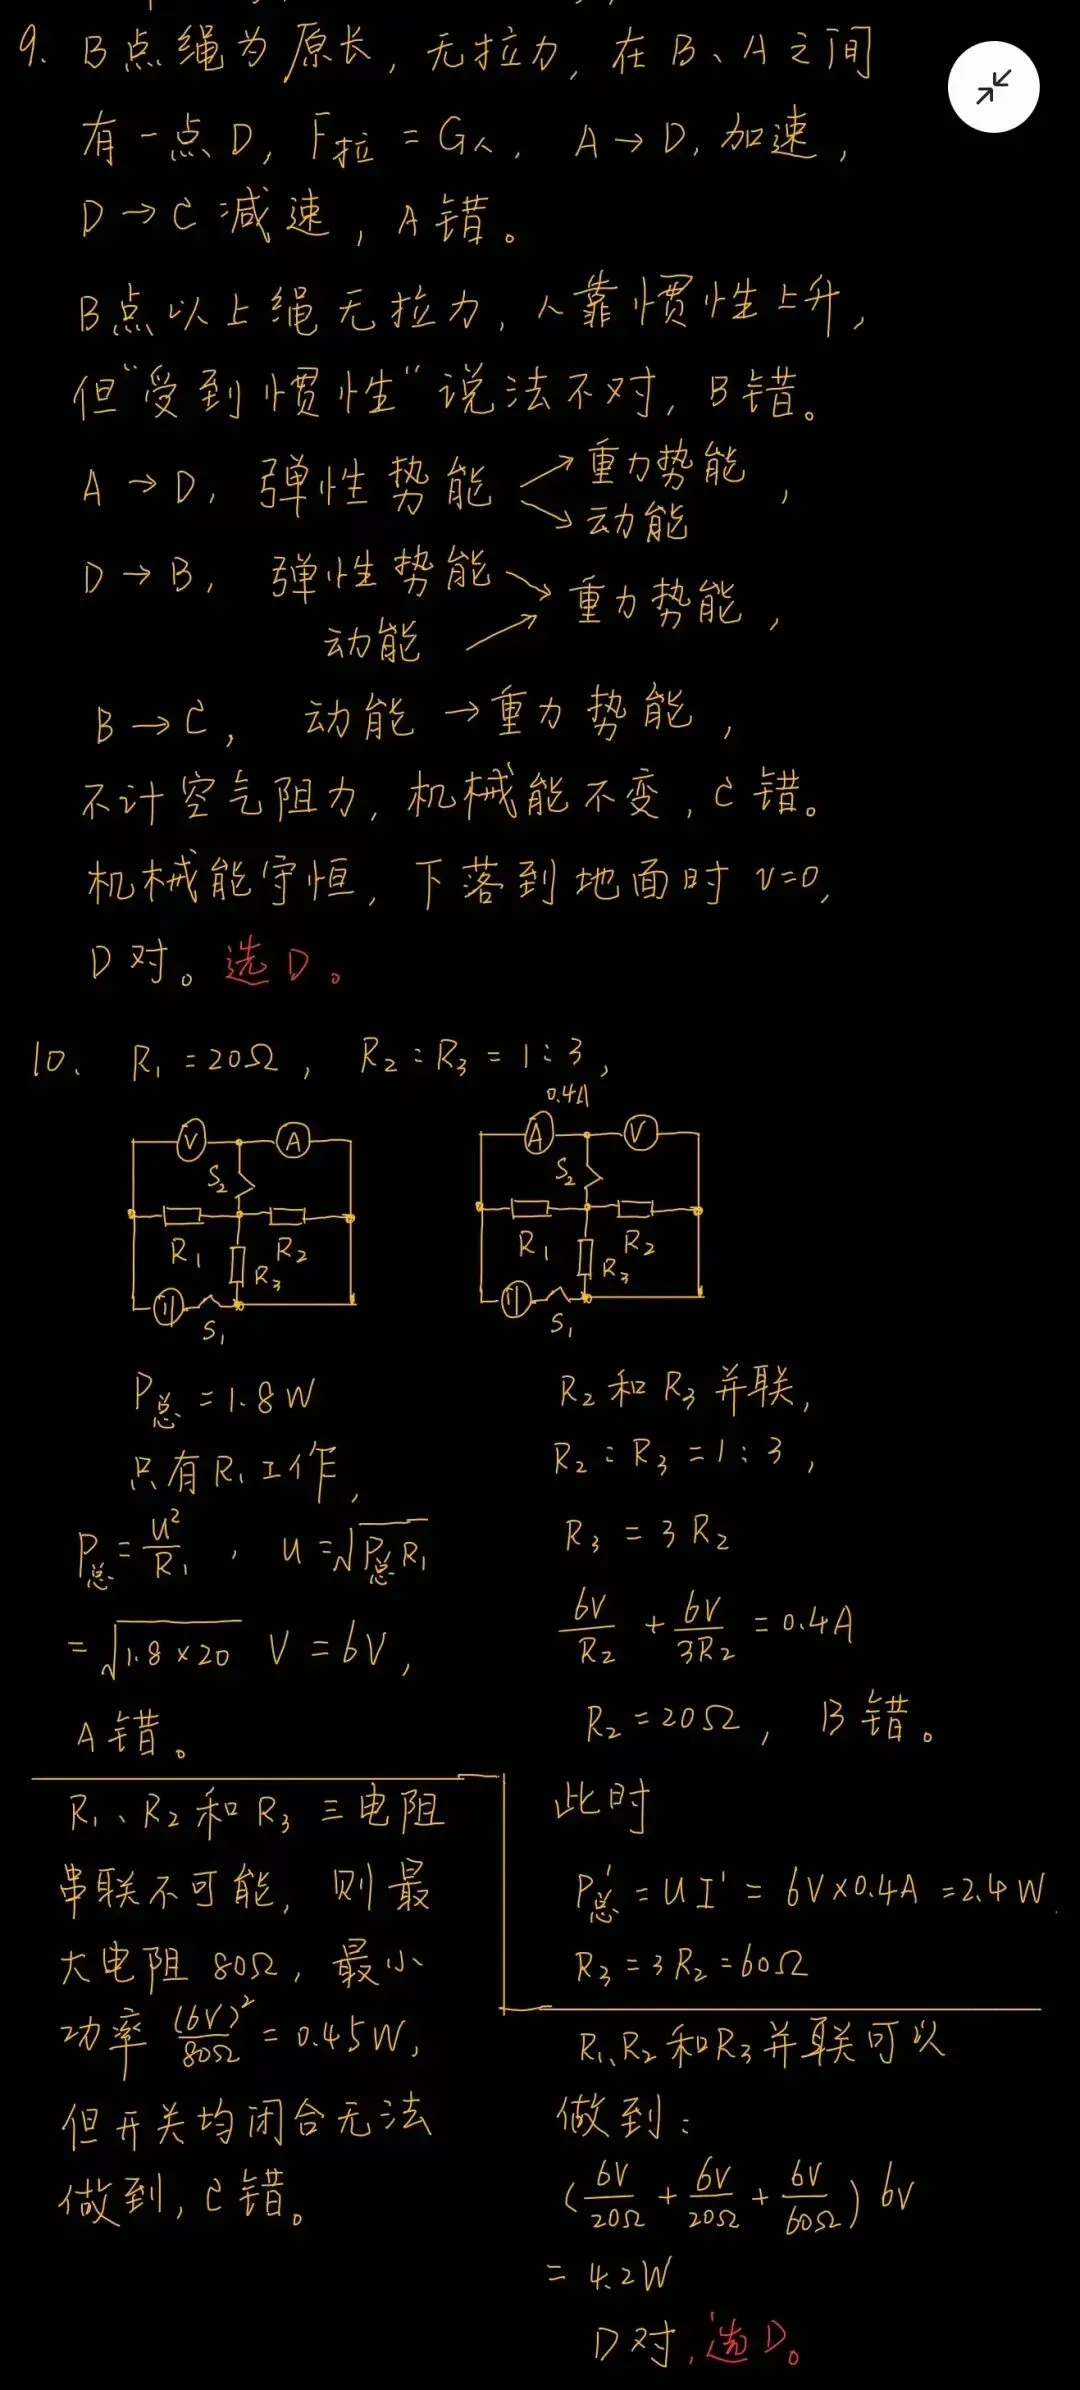 9. B点绳为原长, 无拉力, 在B、A之间
有一点D, F拉 = G人, A→D, 加速,
D→C减速, A错。
B点以上绳无拉力, 人靠惯性上升,
但“受到惯性”说法不对, B错。
A→D, 弹性势能 ↗重力势能 ↘动能,
D→B, 弹性势能↘ 动能↗ 重力势能,
B→C, 动能→重力势能,
不计空气阻力, 机械能不变, C错。
机械能守恒, 下落到地面时 v=0,
D对。选D。
10. R₁=20Ω, R₂:R₃=1:3,
V A S₂ R₁ R₂ R₃ S₁
0.4A
A V S₂ R₁ R₂ R₃ S₁
P总=1.8W
只有R₁工作,
P总=U²/R₁, U=√(P总R₁)
=√(1.8×20) V=6V,
A错。
R₂和R₃并联,
R₂:R₃=1:3,
R₃=3R₂
6V/R₂+6V/3R₂=0.4A
R₂=20Ω, B错。
此时
P'总=UI'=6V×0.4A=2.4W.
R₃=3R₂=60Ω
R₁、R₂和R₃三电阻
串联不可能, 则最
大电阻80Ω, 最小
功率(6V)²/80Ω=0.45W,
但开关均闭合无法
做到, C错。
R₁、R₂和R₃并联可以
做到:
(6V/20Ω+6V/20Ω+6V/60Ω)6V
=4.2W
D对, 选D。